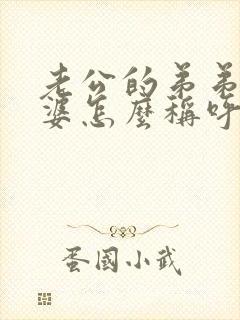 老公的弟弟
婆怎麼稱呼
蛋國小武